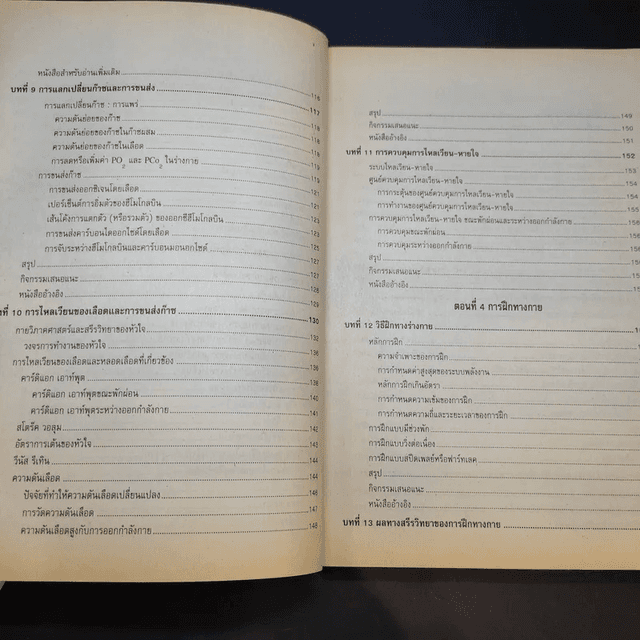 หนังสือสำหรับอ่านเพิ่มเติม 116
บทที่ 9 การแลกเปลี่ยนก๊าซและการขนส่ง 117
การแลกเปลี่ยนก๊าซ : การแพร่ 118
ความดันย่อยของก๊าซ 118
ความดันย่อยของก๊าซในก๊าซผสม 118
ความดันย่อยของก๊าซในเลือด 118
การลดหรือเพิ่มค่า PO2 และ PCo2 ในร่างกาย 119
การขนส่งก๊าซ 121
การขนส่งออกซิเจนโดยเลือด 121
เปอร์เซ็นต์การอิ่มตัวของฮีโมโกลบิน
เส้นโค้งการแตกตัว (หรือรวมตัว) ของออกซีฮีโมโกลบิน 121
การขนส่งคาร์บอนไดออกไซด์โดยเลือด 123
การจับระหว่างฮีโมโกลบินและคาร์บอนมอนอกไซด์ 125
สรุป 127
กิจกรรมเสนอแนะ 128
หนังสืออ้างอิง 129
ที่ 10 การไหลเวียนของเลือดและการขนส่งก๊าซ 130
กายวิภาคศาสตร์และสรีรวิทยาของหัวใจ 132
วงจรการทำงานของหัวใจ 136
การไหลเวียนของเลือดและหลอดเลือดที่เกี่ยวข้อง 136
คาร์ดิแอก เอาท์พุต 138
คาร์ดิแอก เอาท์พุตขณะพักผ่อน 140
คาร์ดิแอก เอาท์พุตระหว่างออกกำลังกาย 141
สโตร๊ค วอลุม 142
อัตราการเต้นของหัวใจ 143
วีนัส รีเทิน 144
ความดันเลือด 144
ปัจจัยที่ทำให้ความดันเลือดเปลี่ยนแปลง 146
การวัดความดันเลือด 147
ความดันเลือดสูงกับการออกกำลังกาย 148
สรุป 149
กิจกรรมเสนอแนะ 150
หนังสืออ้างอิง 151
บทที่ 11 การควบคุมการไหลเวียน-หายใจ 152
ระบบไหลเวียน-หายใจ 153
ศูนย์ควบคุมการไหลเวียน-หายใจ 154
การกระตุ้นของศูนย์ควบคุมการไหลเวียน-หายใจ 154
การทำงานของศูนย์ควบคุมการไหลเวียน-หายใจ 155
การควบคุมการไหลเวียน-หายใจ ขณะพักผ่อนและระหว่างออกกำลังกาย
การควบคุมขณะพักผ่อน
การควบคุมระหว่างออกกำลังกาย
สรุป
กิจกรรมเสนอแนะ
หนังสืออ้างอิง
ตอนที่ 4 การฝึกทางกาย
บทที่ 12 วิธีฝึกทางร่างกาย
หลักการฝึก
ความจำเพาะของการฝึก
การกำหนดค่าสูงสุดของระบบพลังงาน
หลักการฝึกเกินอัตรา
การกำหนดความเข้มของการฝึก
การกำหนดความถี่และระยะเวลาของการฝึก
การฝึกแบบมีช่วงพัก
การฝึกแบบวิ่งต่อเนื่อง
การฝึกแบบสปีดเพลย์หรือฟาร์ทเลค
สรุป
กิจกรรมเสนอแนะ
หนังสืออ้างอิง
บทที่ 13 ผลทางสรีรวิทยาของการฝึกทางกาย